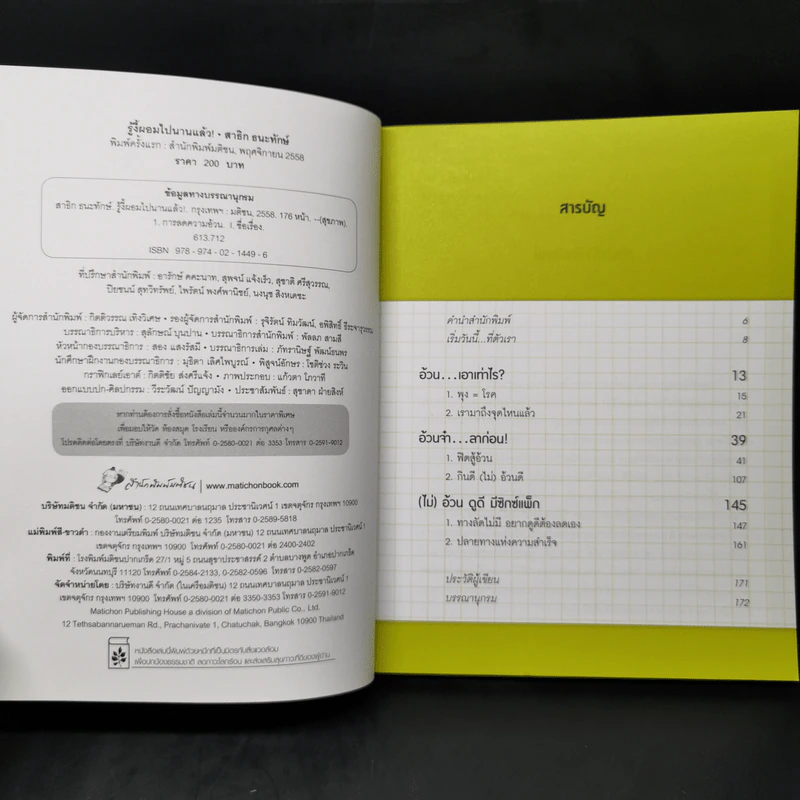 รู้งี้ผอมไปนานแล้ว! • สาธิก ธนะทักษ์
พิมพ์ครั้งแรก : สำนักพิมพ์มติชน, พฤศจิกายน 2558
ราคา 200 บาท
ข้อมูลทางบรรณานุกรม
สาธิก ธนะทักษ์ รู้งี้ผอมไปนานแล้ว!. กรุงเทพฯ : มติชน, 2558. 176 หน้า. --(สุขภาพ).
1. การลดความอ้วน. I. ชื่อเรื่อง.
613.712
ISBN 978 - 974 - 02 - 1449 - 6
ที่ปรึกษาสำนักพิมพ์ : อารักษ์ คคะนาท, สุพจน์ แจ้งเร็ว, สุชาติ ศรีสุวรรณ,
ปิยชนน์ สุทวีทรัพย์, ไพรัตน์ พงศ์พานิชย์, นงนุช สิงหเดชะ
ผู้จัดการสำนักพิมพ์ : กิตติวรรณ เทิงวิเศษ • รองผู้จัดการสำนักพิมพ์ : รุจิรัตน์ ทิมวัฒน์, อพิสิทธิ์ ธีระจารุวรรณ
บรรณาธิการบริหาร : สุลักษณ์ บุนปาน • บรรณาธิการสำนักพิมพ์ : พัลลภ สามสี
หัวหน้ากองบรรณาธิการ : สอง แสงรัสมี • บรรณาธิการเล่ม : ภัทรานิษฐ์ พัฒน์ธนพร
นักศึกษาฝึกงานกองบรรณาธิการ : มุธิตา เลิศไพบูรณ์ • พิสูจน์อักษร : โชติช่วง ระวิน
กราฟิกเลย์เอาต์ : กิตติชัย ส่งศรีแจ้ง • ภาพประกอบ : แก้วตา โภวาที
ออกแบบปก-ศิลปกรรม : วีระวัฒน์ ปัญญามัง • ประชาสัมพันธ์ : สุชาดา ฝ่ายสิงห์
หากท่านต้องการสั่งซื้อหนังสือเล่มนี้จำนวนมากในราคาพิเศษ
เพื่อมอบให้วัด ห้องสมุด โรงเรียน หรือองค์กรการกุศลต่างๆ
โปรดติดต่อโดยตรงที่ บริษัทงานดี จำกัด โทรศัพท์ 0-2580-0021 ต่อ 3353 โทรสาร 0-2591-9012
สำนักพิมพ์มติชน | www.matichonbook.com
บริษัทมติชน จำกัด (มหาชน) : 12 ถนนเทศบาลนฤมาล ประชานิเวศน์ 1 เขตจตุจักร กรุงเทพฯ 10900
โทรศัพท์ 0-2580-0021 ต่อ 1235 โทรสาร 0-2589-5818
แม่พิมพ์สี-ขาวดำ : กองงานเตรียมพิมพ์ บริษัทมติชน จำกัด (มหาชน) 12 ถนนเทศบาลนฤมาล ประชานิเวศน์ 1
เขตจตุจักร กรุงเทพฯ 10900 โทรศัพท์ 0-2580-0021 ต่อ 2400-2402
พิมพ์ที่ : โรงพิมพ์มติชนปากเกร็ด 27/1 หมู่ 5 ถนนสุขาประชาสรรค์ 2 ตำบลบางพูด อำเภอปากเกร็ด
จังหวัดนนทบุรี 11120 โทรศัพท์ 0-2584-2133, 0-2582-0596 โทรสาร 0-2582-0597
จัดจำหน่ายโดย : บริษัทงานดี จำกัด (ในเครือมติชน) 12 ถนนเทศบาลนฤมาล ประชานิเวศน์ 1
เขตจตุจักร กรุงเทพฯ 10900 โทรศัพท์ 0-2580-0021 ต่อ 3350-3353 โทรสาร 0-2591-9012
Matichon Publishing House a division of Matichon Public Co., Ltd.
12 Tethsabannarueman Rd., Prachanivate 1, Chatuchak, Bangkok 10900 Thailand
หนังสือเล่มนี้พิมพ์ด้วยหมึกที่เป็นมิตรกับสิ่งแวดล้อม
เพื่อปกป้องธรรมชาติ ลดภาวะโลกร้อน และส่งเสริมสุขภาวะที่ดีของผู้อ่าน
สารบัญ
คำนำสำนักพิมพ์ 6
เริ่มวันนี้...ที่ตัวเรา 8
อ้วน...เอาเท่าไร? 13
1. พุง = โรค 15
2. เรามาถึงจุดไหนแล้ว 21
อ้วนจ๋า...ลาก่อน! 39
1. ฟิตสู้อ้วน 41
2. กินดี (ไม่) อ้วนดี 107
(ไม่) อ้วน ดูดี มีซิกซ์แพ็ก 145
1. ทางลัดไม่มี อยากดูดีต้องลดเอง 147
2. ปลายทางแห่งความสำเร็จ 161
ประวัติผู้เขียน 171
บรรณานุกรม 172